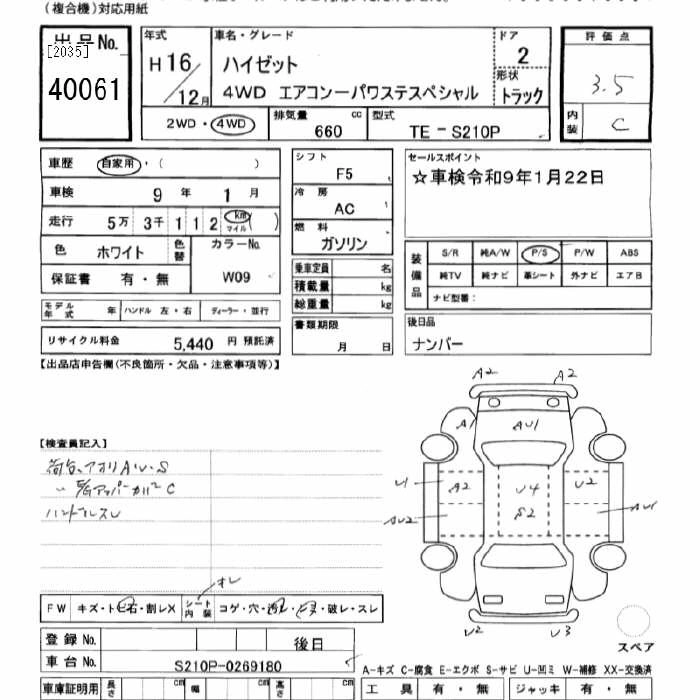 (複合機)対応用紙
出品No.
[2035]
40061
年式
H16/12月
車名・グレード
ハイゼット
4WD エアコンーパワステスペシャル
ドア
2
形状
トラック
評価点
3.5
内装
C
2WD・4WD
排気量
660 cc
型式
TE－S210P
車歴 自家用・( )
車検 9年 1月
走行 5万 3千 1 1 2 km マイル ( )
色 ホワイト 色替
カラーNo.
W09
保証書 有・無
モデル年式 年 ハンドル 左・右 ディーラー・並行
リサイクル料金 5,440 円 預託済
シフト
F5
冷房
AC
燃料
ガソリン
乗車定員 名
積載量 kg
総重量 kg
書類期限
月 日
セールスポイント
☆車検令和9年1月22日
装備品
S/R 純A/W P/S P/W ABS
純TV 純ナビ 革シート 外ナビ エアB
ナビ型番：
後日品
ナンバー
【出品店申告欄(不良箇所・欠品・注意事項等)】
【検査員記入】
ハンドルスレ
オレ
FW キズ・トビ石・割レX シート内装 コゲ・穴・汚レ・ ・破レ・スレ
登録No. 後日
車台No. S210P-0269180
車庫証明用 長さ cm 幅 cm 高さ cm
A2 A2
A1 AU1
U1 A2 U4 U2
AU2 S2 AU1
U2 U3
スペア
A-キズ C-腐食 E-エクボ S-サビ U-凹ミ W-補修 XX-交換済
工具 有・無 ジャッキ 有・無